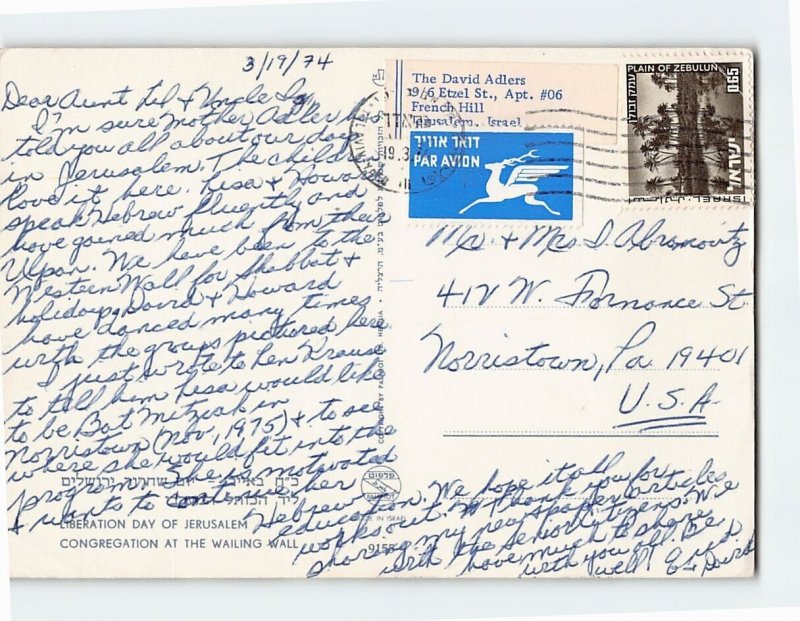 3/19/74
Dear Aunt Lil & Uncle Izzy,
I'm sure Mother Adler has
told you all about our days
in Jerusalem. The children
love it here. Lisa & Howard
speak Hebrew fluently and
have gained much from their
Ulpan. We have been to the
Western Wall for Shabbat &
holidays. David & Howard
have danced many times
with the groups pictured here.
I just wrote to Len Krause
to tell him Lisa would like
to be Bat Mitzvah in
Norristown (Nov, 1975) & to see
where she would fit into the
program. She is motivated
& wants to continue her
Hebrew education. We hope it all
works out. Thank you for
sharing my newspaper articles
with the senior citizens. We
have much to share
with you all. Be
well!
David
The David Adlers
9/6 Etzel St., Apt. #06
French Hill
Jerusalem, Israel
דואר אוויר
PAR AVION
PLAIN OF ZEBULUN
עמק זבולון
0.65
ישראל
ISRAEL
Mr. & Mrs I. Abramovitz
412 W. Fornance St
Norristown, Pa 19401
U.S.A
פלפוט
PALPHOT
MADE IN ISRAEL
9155
LIBERATION DAY OF JERUSALEM
CONGREGATION AT THE WAILING WALL